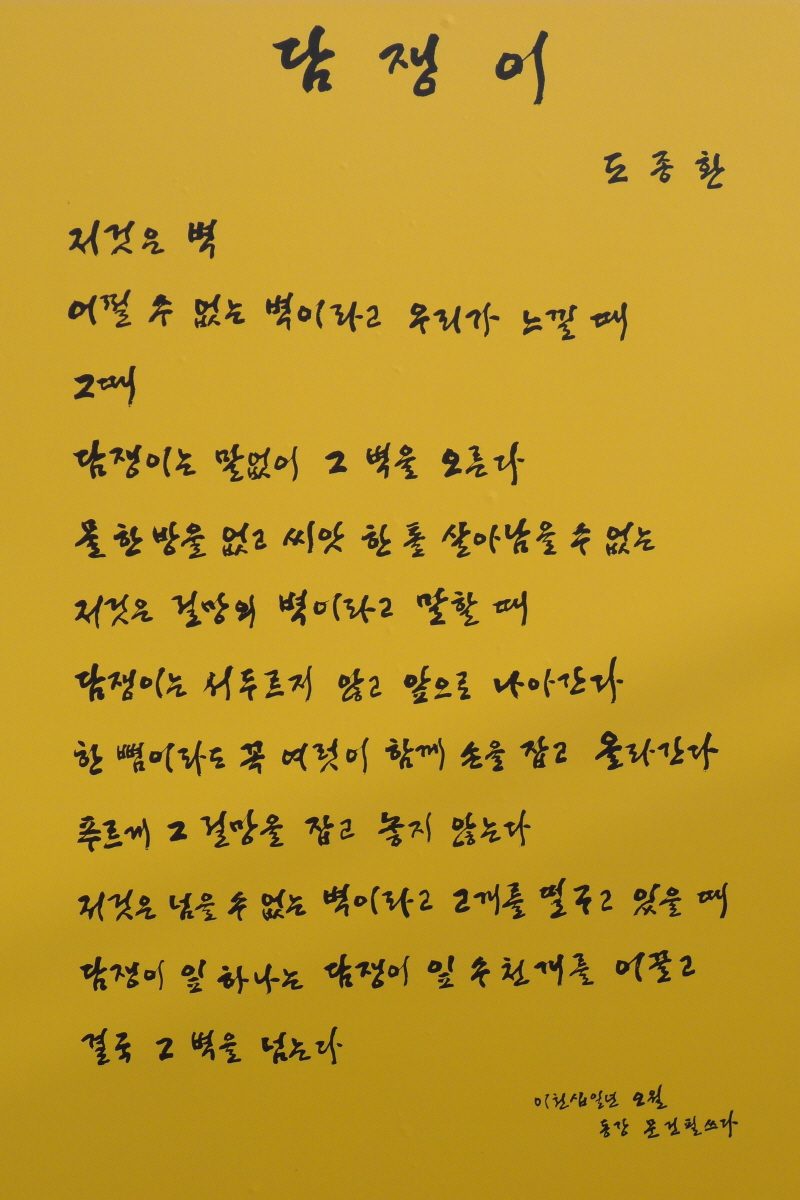 담쟁이
도종환
저것은 벽
어쩔 수 없는 벽이라고 우리가 느낄 때
그때
담쟁이는 말없이 그 벽을 오른다
물 한 방울 없고 씨앗 한 톨 살아남을 수 없는
저것은 절망의 벽이라고 말할 때
담쟁이는 서두르지 않고 앞으로 나아간다
한 뼘이라도 꼭 여럿이 함께 손을 잡고 올라간다
푸르게 그 절망을 잡고 놓지 않는다
저것은 넘을 수 없는 벽이라고 고개를 떨구고 있을 때
담쟁이 잎 하나는 담쟁이 잎 수천 개를 이끌고
결국 그 벽을 넘는다
이천십일년 오월
동강 문건필 쓰다